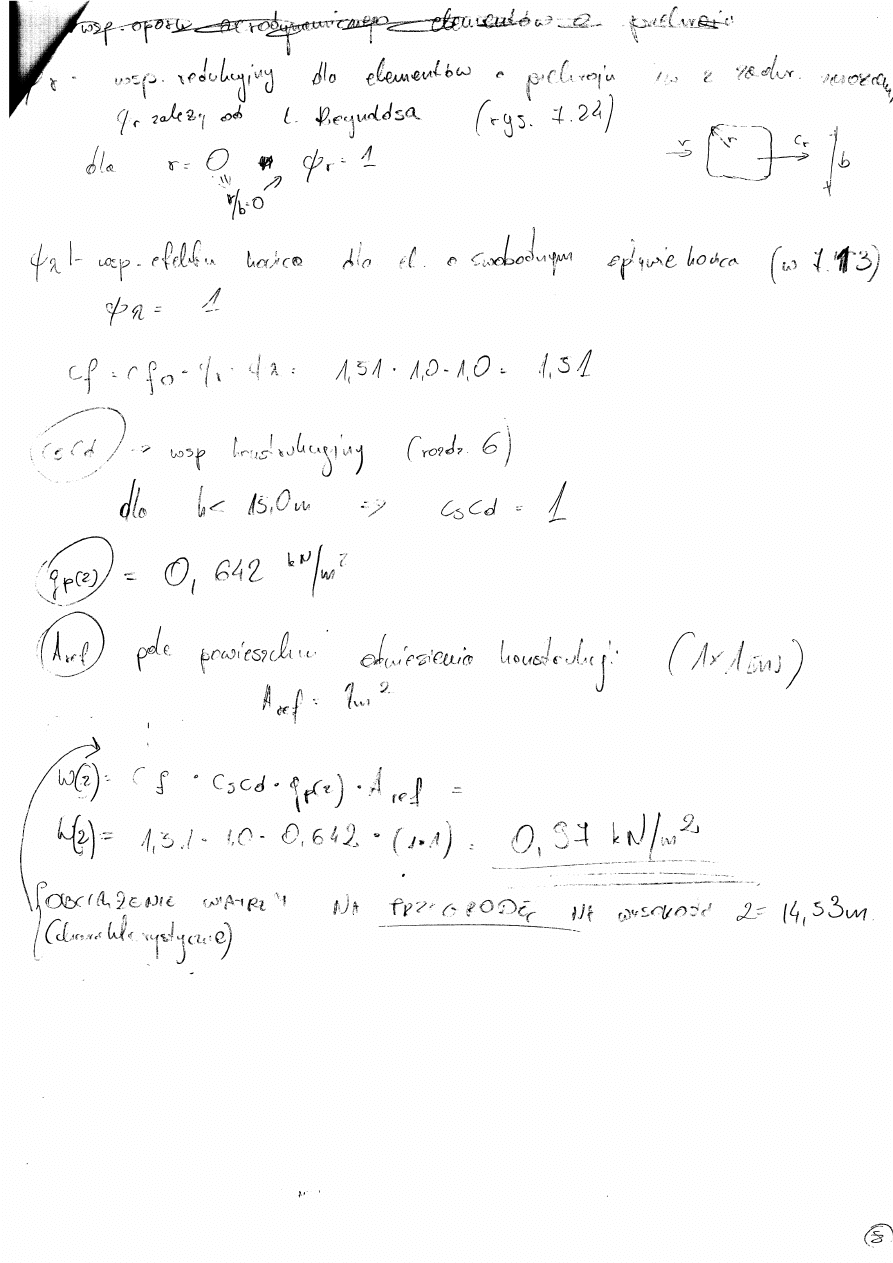 wsp. oporu aerodynamicznego elementów o przekroju
ψr - wsp. redukcyjny dla elementów o przekroju kw z zaokr. narożam,
ψr zależy od l. Reynoldsa (rys. 7.24)
dla r = 0 ψr = 1
r/b=0
v r cr b
ψλ - wsp. efektu końca dla el. o swobodnym opływie końca (w 7.13)
ψλ = 1
cf = cf0 · ψr · ψλ = 1,51 · 1,0 · 1,0 = 1,51
CsCd -> wsp konstrukcyjny (rozdz. 6)
dla h < 15,0m => CsCd = 1
qp(z) = 0,642 kN/m²
Aref pole powierzchni odniesienia konstrukcji (1x1m)
Aref = 1m²
W(z) = Cf · CsCd · qp(z) · Aref =
W(z) = 1,51 · 1,0 · 0,642 · (1·1) = 0,97 kN/m²
OBCIĄŻENIE WIATREM NA PRZEGRODĘ NA WYSOKOŚĆ Z = 14,53m.
(charakterystyczne)
8